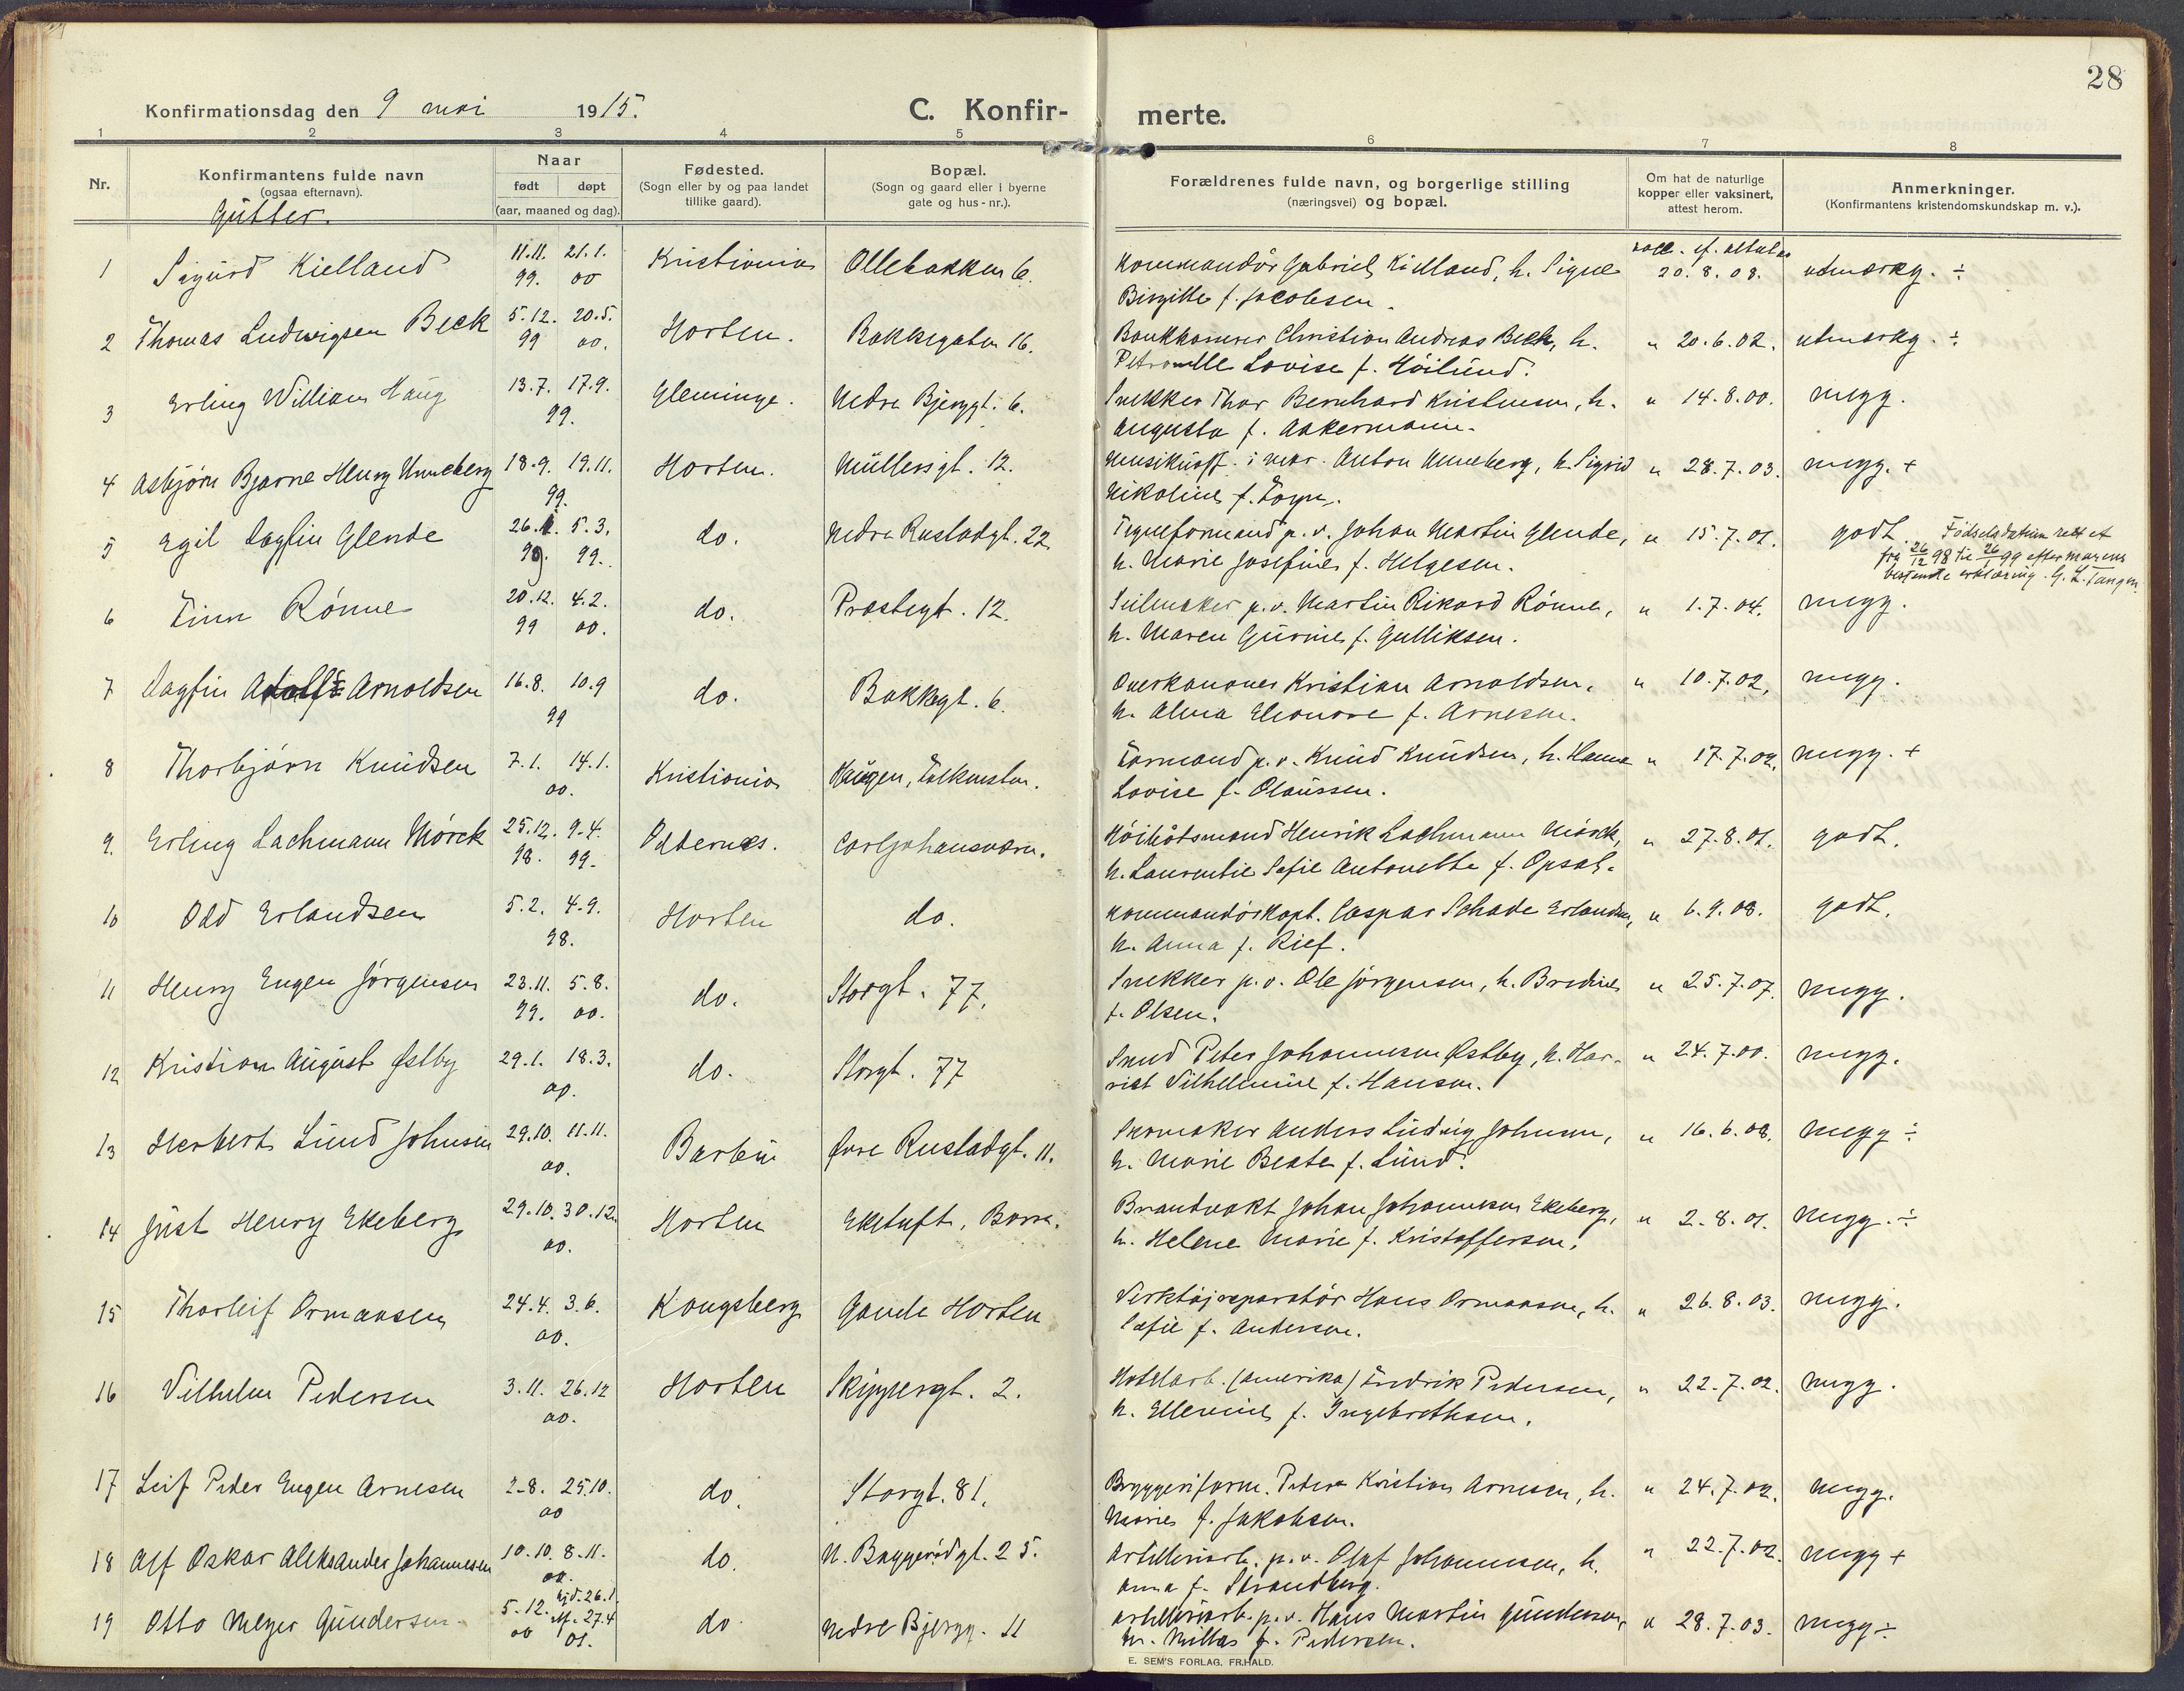 28
Konfirmationsdag den 9 mai 1915. C. Konfir- merte.
1 2 3 4 5 6 7 8
Nr. Konfirmantens fulde navn (ogsaa efternavn). Naar født døpt (aar, maaned og dag). Fødested. (Sogn eller by og paa landet tillike gaard). Bopæl. (Sogn og gaard eller i byerne gate og hus-nr.). Forældrenes fulde navn, og borgerlige stilling (næringsvei) og bopæl. Om hat de naturlige kopper eller vaksinert, attest herom. Anmerkninger. (Konfirmantens kristendomskundskap m. v.).
Gutter.
1 Sigurd Kielland 11.11. 99. 21.1. 00 Kristiania Ollebakken 6. Kommandör Gabriel Kielland, h. Signe vacc. ef. attest av 20.8.08. utmerkg. ÷
Birgitte f. Jacobsen.
2 Thomas Ludwigsen Beck 5.12. 99 20.5. 00. Horten. Bakkegaten 16. Bankkaserer Christian Andreas Beck, h. " 20.6.02. utmerkg. ÷
Petronelle Lovise f. Höilund.
3 Erling William Haug 13.7. 17.9. 99. Glemminge. Nedre Bjerggt. 6. Snekker Thor Bernhard Kristensen, h. " 14.8.00. megg.
Augusta f. Aakermann.
4 Asbjørn Bjarne Henry Unneberg 18.9. 19.11. 99. Horten. Müllersgt. 12. Musikuoff. i mar. Anton Unneberg, h. Sigrid " 28.7.03. megg. +
Nikoline f. Foyn.
5 Egil Dagfin Glende 26.1. 99. 5.3. 99. do. Nedre Rustadgt. 22. Tegneformand p. v. Johan Martin Glende, " 15.7.01. godt. Födselsdatum rettet
h. Marie Josefine f. Helgesen. fra 26/12 98 til 26/1 99 efter morens
bestemte erklæring. G. L. Tangen.
6 Finn Rönne 20.12. 99 4.2. 00. do. Prestegt. 12. Seilmaker p. v. Martin Rikard Rönne, " 1.7.04. megg.
h. Maren Gurine f. Gulliksen.
7 Dagfin Adolf Arnoldsen 16.8. 10.9 99 do. Bakkegt. 6. Overkanoner Kristian Arnoldsen, " 10.7.02. megg.
h. Alma Eleonore f. Arnesen.
8 Thorbjørn Knudsen 7.1. 14.1. 00. Kristiania Haugen, Falkensten. Formand p. v. Knud Knudsen, h. Hanna " 17.7.02. megg. +
Lovise f. Olaussen.
9. Erling Lachmann Mörck 25.12. 98. 9.4. 99. Oddernes. Carljohansværn. Höibåtsmand Henrik Lachmann Mörck, " 27.8.01. godt.
h. Laurentie Sofie Antonette f. Opsal.
10 Odd Erlandsen 5.2. 4.9. 98. Horten do. Kommandörkapt. Caspar Schade Erlandsen, " 6.9.08. godt.
h. Anna f. Rief.
11 Henry Eugen Jörgensen 23.11. 99. 5.8. 00. do. Storgt. 77. Snekker p. v. Ole Jörgensen, h. Bredine " 25.7.07. megg.
f. Olsen.
12 Kristian August Østby 29.1. 18.3. 00. do. Storgt. 77 Smed Peter Johannesen Østby, h. Har- " 24.7.00. megg.
riet Vilhelmine f. Hansen.
13 Herbert Lund Johnsen 29.10. 11.11. 00. Barbu Øvre Rustadgt. 11. Skomaker Anders Ludvig Johnsen, " 16.6.08. megg ÷
h. Marie Beate f. Lund.
14 Just Henry Ekeberg 29.10. 30.12. 00. Horten Eketuft, Borre. Brandvakt Johan Johannesen Ekeberg, " 2.8.01. megg. ÷
h. Helene Marie f. Kristoffersen.
15 Thorleif Ormaasen 24.4. 3.6. 00. Kongsberg Gamle Horten Verktöjreparatör Hans Ormaasen, h. " 26.8.03. megg.
Sofie f. Andersen.
16 Vilhelm Pedersen 3.11. 26.12 00. Horten Skippergt. 2. Hotelarb. (Amerika) Fredrik Pedersen, " 22.7.02. megg.
h. Ellevine f. Ingebrethsen.
17 Leif Peder Eugen Arnesen 2.8. 25.10. 00 do. Storgt. 81. Bryggeriform. Peder Kristian Arnesen, h. " 24.7.02. megg.
Marie f. Jakobsen.
18 Alf Oskar Aleksander Johannesen 10.10. 8.11. 00. do. N. Baggerödgt. 25. Artilleriarb. p. v. Olaf Johannesen, h. " 22.7.02. megg +
Anna f. Strandberg.
19 Otto Meyer Gundersen 5.12. 00 hjd. 26.1. st. 27.4 01. do. Nedre Bjergg. 11 Artilleriarb. p. v. Hans Martin Gundersen, " 28.7.03. megg ÷
h. Milla f. Pedersen.
E. SEM'S FORLAG, FR.HALD.